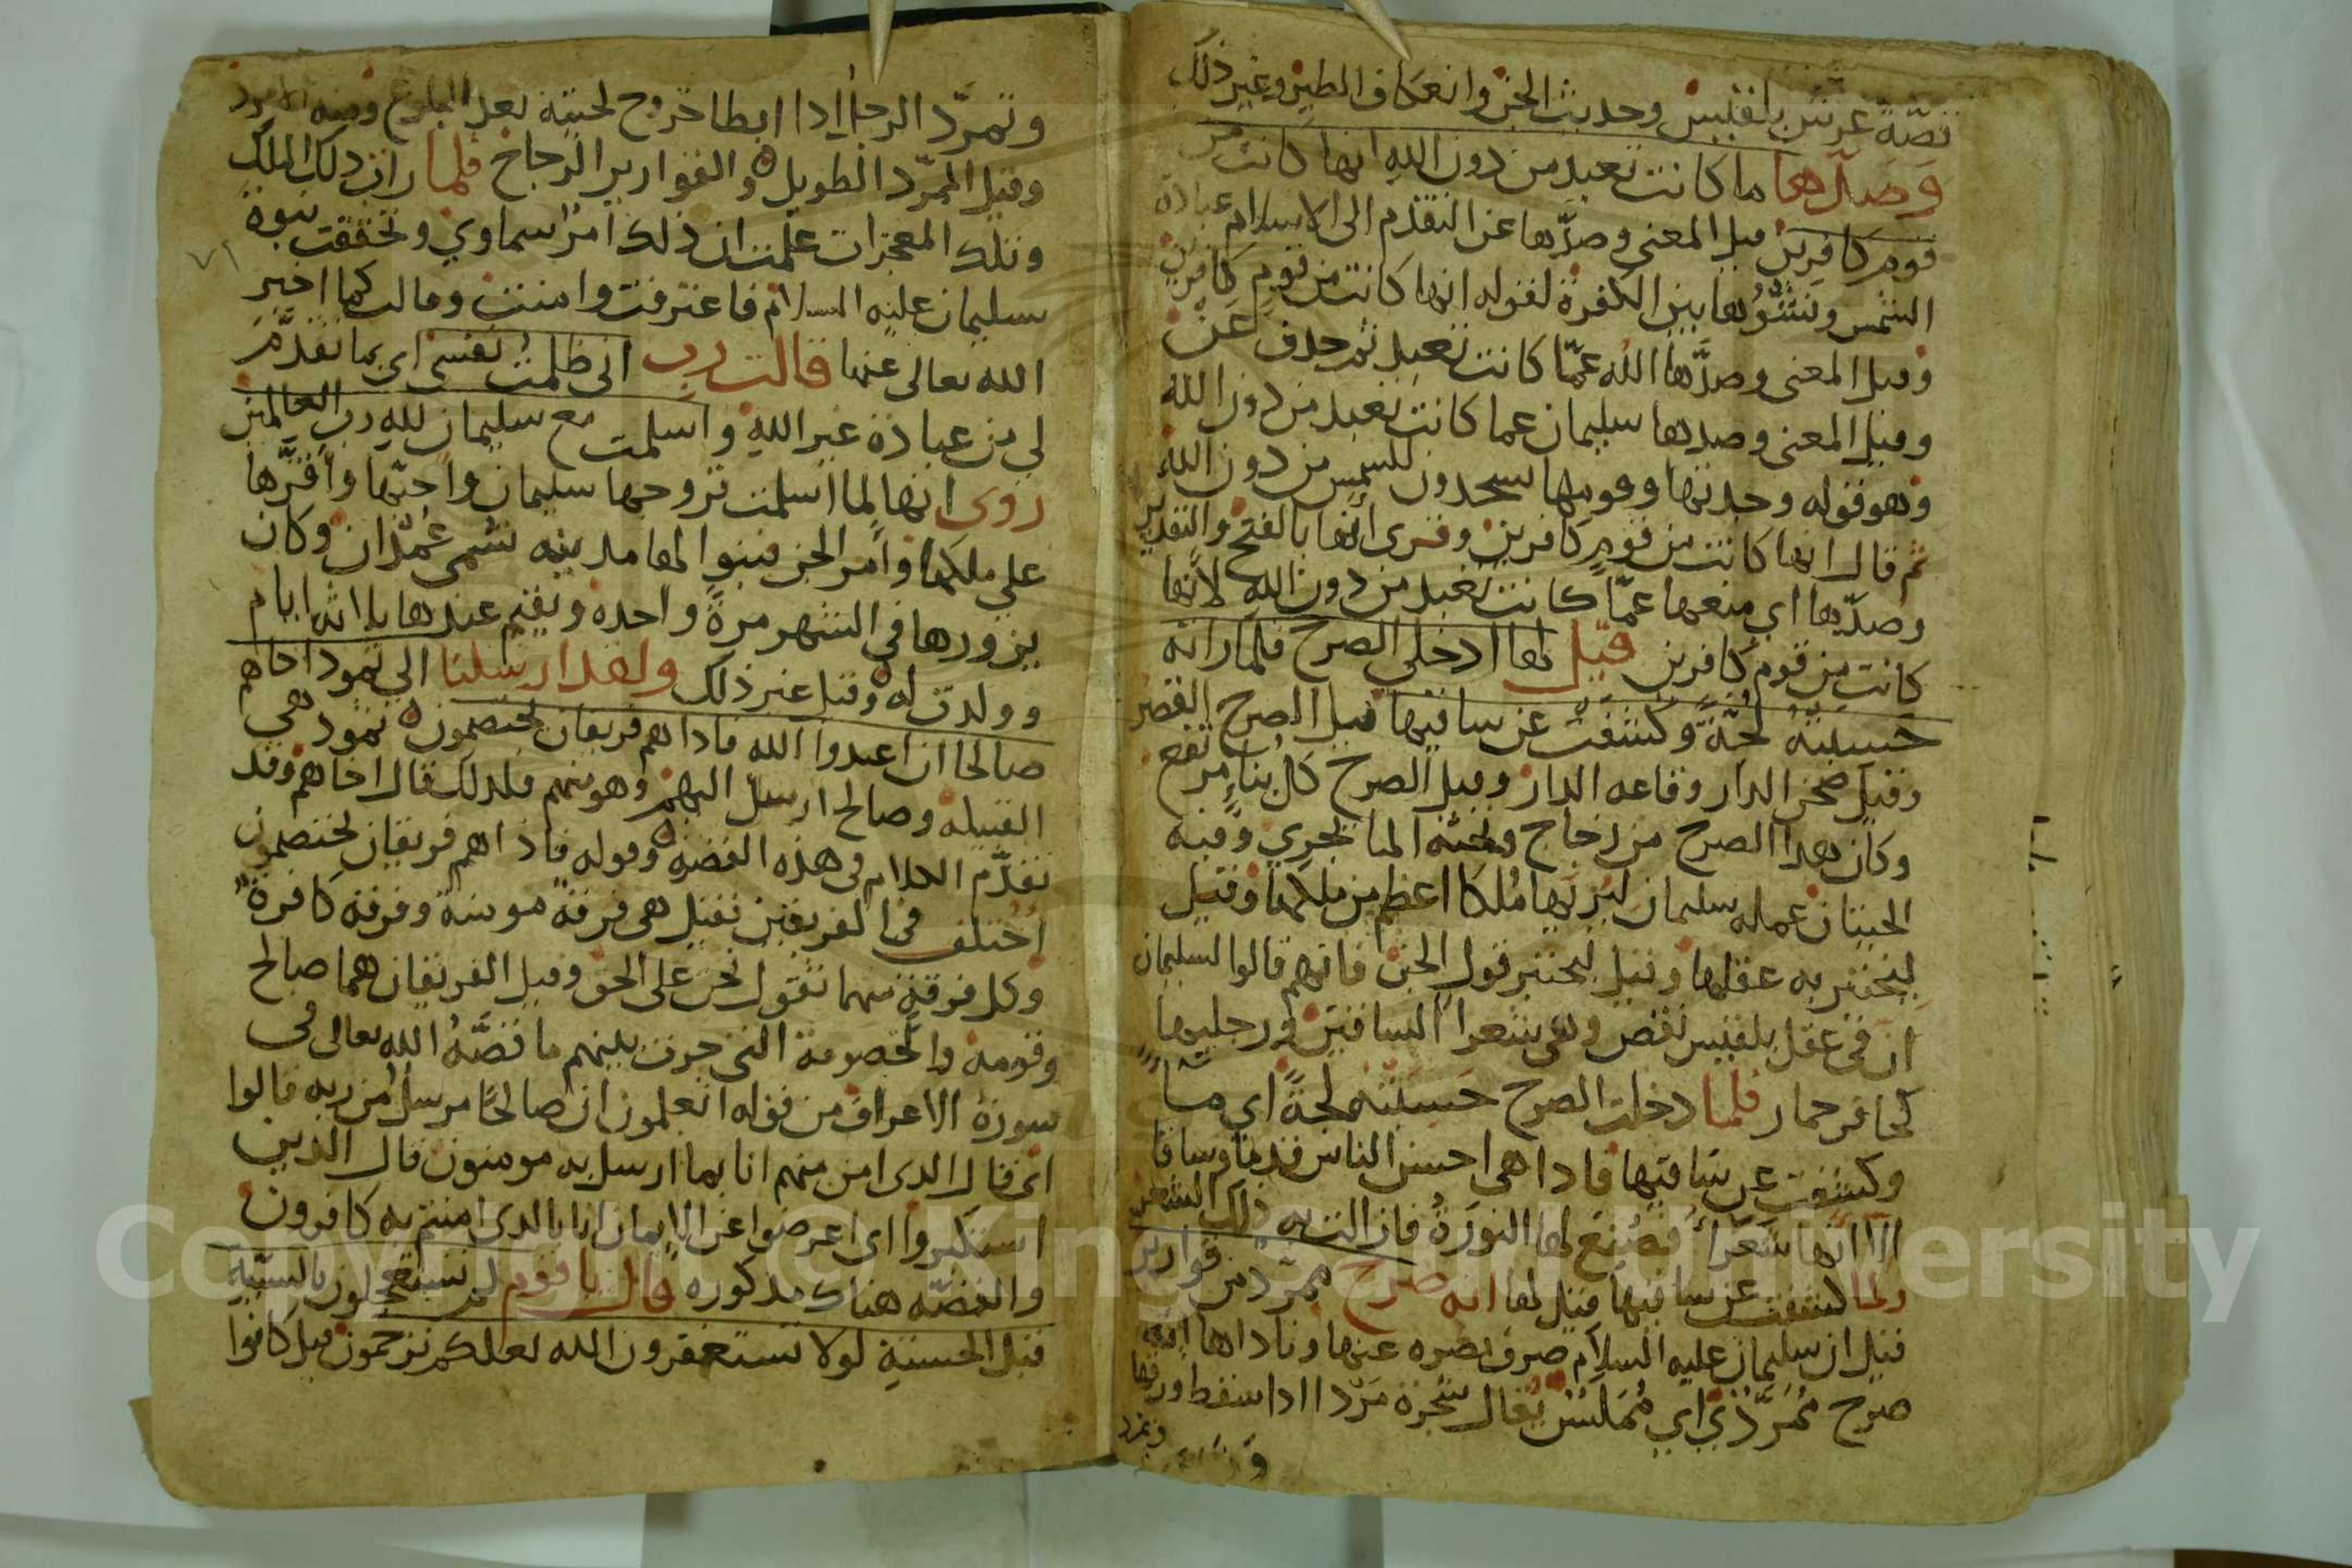 قصة عرش بلقيس وحديث الجن وانعكاف الطير وغير ذلك
وصدها ما كانت تعبد من دون الله انها كانت من
قوم كافرين قيل المعنى وصدّها عن التقدم الى الاسلام عبادة
الشمس ونشؤها بين الكفرة لقوله انها كانت من قوم كافرين
وقيل المعنى وصدّها الله عمّا كانت تعبد ثم حذف عن
وقيل المعنى وصدها سليمان عما كانت تعبد من دون الله
وهو قوله وجدتها وقومها يسجدون للشمس من دون الله
ثم قال انها كانت من قوم كافرين وقرى انها بالفتح والتقدير
وصدّها اي منعها عمّا كانت تعبد من دون الله لانها
كانت من قوم كافرين قيل لها ادخلي الصرح فلما راته
حسبته لجّةً وكشفت عن ساقيها قيل الصرح القصر
وقيل صحن الدار وقاعه الدار وقيل الصرح كل بناءٍ مرتفع
وكان هذا الصرح من زجاج وتحته الما يجري وفيه
الحيتان عمله سليمان ليريها مُلكا اعظم من ملكها وقيل
ليختبر به عقلها وقيل ليختبر قول الجن فانهم قالوا لسليمان
ان في عقل بلقيس نقص وهي شعرا الساقين ورجليها
كحافر حمار فلما دخلت الصرح حسبته لجةً اي مـاً
وكشفت عن ساقيها فاذا هي احسن الناس قدماً وساقا
الا انها شعراً فصُنع لها النورة فازالت به ذلك الشعر
ولما كشفت عن ساقيها قيل لها انه صرح ممرّد من قوارير
قيل ان سليمان عليه السلام صرف بصره عنها وناداها انه
صرح مُمَرَّدٌ اي مُملس يقال شجرة مردا اذا سقط ورقها
وتمرد
وتمرّد الرجل اذا ابطا خروج لحيته بعد البلوغ ومنه الامرد
وقيل الممرّد الطويل والقوارير الزجاج فلما رات ذلك الملك
وتلك المعجزات علمت ان ذلك امرٌ سماوي وتحققت نبوة
سليمان عليه السلام فاعترفت وامنت وقالت كما اخبر
الله تعالى عنها قالت رب انى ظلمت نفسى اي بما تقدّم
لي من عبادة غير الله واسلمت مع سليمان لله رب العالمين
روى انها لما اسلمت تزوجها سليمان واحبّها واقرّها
على ملكها وامر الجن فبنوا لها مدينه تسمى غمدان وكان
يزورها في الشهر مرةً واحده ويقيم عندها ثلاثه ايام
وولدت له وقيل غير ذلك ولقد ارسلنا الى ثمود اخاهم
صالحا ان اعبدوا الله فاذا هم فريقان يختصمون ثمود هي
القبيله وصالح ارسل اليهم وهو منهم فلذلك قال اخاهم وقد
تقدّم الكلام في هذه القصه وقوله فاذا هم فريقان يختصمون
اختلف في الفريقين فقيل هى فرقة مومنة وفرقه كافرة
وكل فرقة منهما تقول نحن على الحق وقيل الفريقان هما صالح
وقومه والخصومة التي جرت بينهم ما قصّهُ الله تعالى في
سورة الاعراف من قوله اتعلمون ان صالحًا مرسلٌ من ربه قالوا
اى قال الذى امن منهم انا بما ارسل به مومنون قال الذين
استكبروا اى اعرضوا عن الايمان انا بالذى امنتم به كافرون
والقصّه هناك مذكوره قال يا قوم لم تستعجلون بالسيّئة
قبل الحسنة لولا تستغفرون الله لعلكم ترحمون قيل كانوا
Copyright © King Saud University